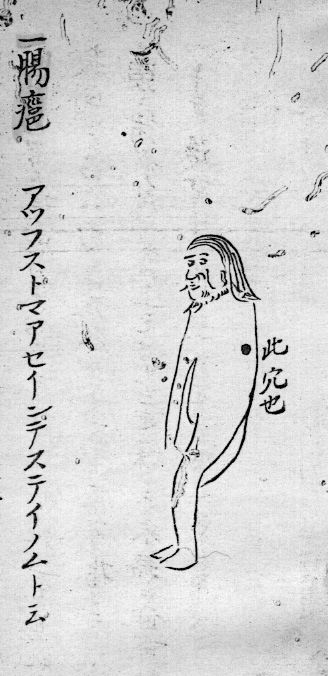 此穴也
一腸癰 アツフストマアセインデステイノムト云